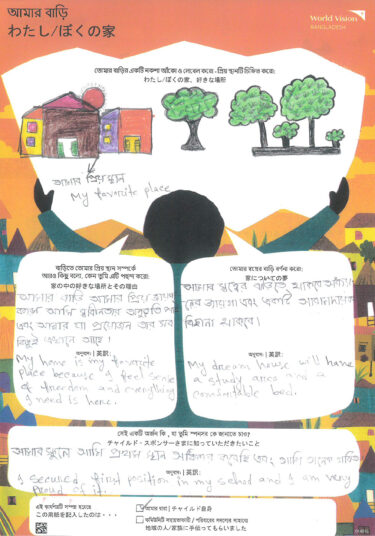 আমার বাড়ি
わたし/ぼくの家
World Vision
BANGLADESH
তোমার বাড়ির একটি নকশা আঁকো ও লেবেল করো - প্রিয় স্থানটি চিহ্নিত করো:
わたし/ぼくの家、好きな場所
আমার প্রিয় স্থান
My favorite place
বাড়িতে তোমার প্রিয় স্থান সম্পর্কে
আরও কিছু বলো, কেন তুমি এটি পছন্দ করো:
家の中の好きな場所とその理由
আমার বাড়ি আমার প্রিয় স্থান
কারণ আমি স্বাধীনতার অনুভূতি পাই
এবং আমার যা প্রয়োজন তার সব
কিছুই এখানে আছে।
অনুবাদ: | 英訳:
My home is my favorite
place because I feel sense
of freedom and everything
I need is here.
তোমার স্বপ্নের বাড়ি বর্ণনা করো:
家についての夢
আমার স্বপ্নের বাড়িতে থাকবে
জায়গা এবং একটি আরামদায়ক
বিছানা থাকবে।
অনুবাদ: | 英訳:
My dream house will have
a study area and a
comfortable bed.
সেই একটি অর্জন কি, যা তুমি স্পনসর কে জানাতে চাও?
チャイルド・スポンサーさまに知っていただきたいこと
আমার স্কুলে আমি প্রথম স্থান অধিকার করেছি এবং আমি অনেক গর্বিত
অনুবাদ: | 英訳:
I secured first position in my school and I am very
proud of it.
এই কার্যপত্রটি সম্পন্ন হয়েছে
この用紙を記入したのは・・・
আমার দ্বারা | チャイルド自身
কমিউনিটি সহায়তাকারী / পরিবারের সদস্যের সাহায্যে
地域の人/家族に手伝ってもらいました